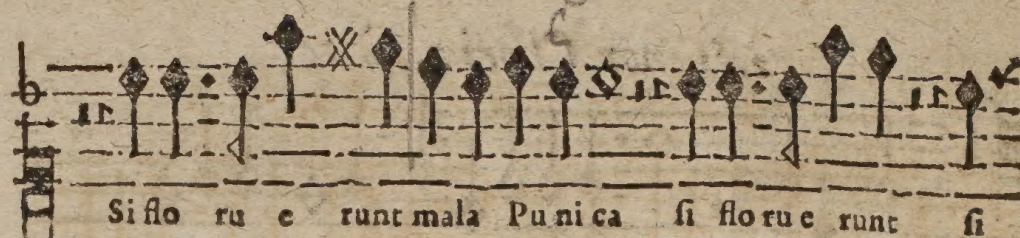 Si flo ru e runt mala Pu ni ca ſi flo ru e runt ſi